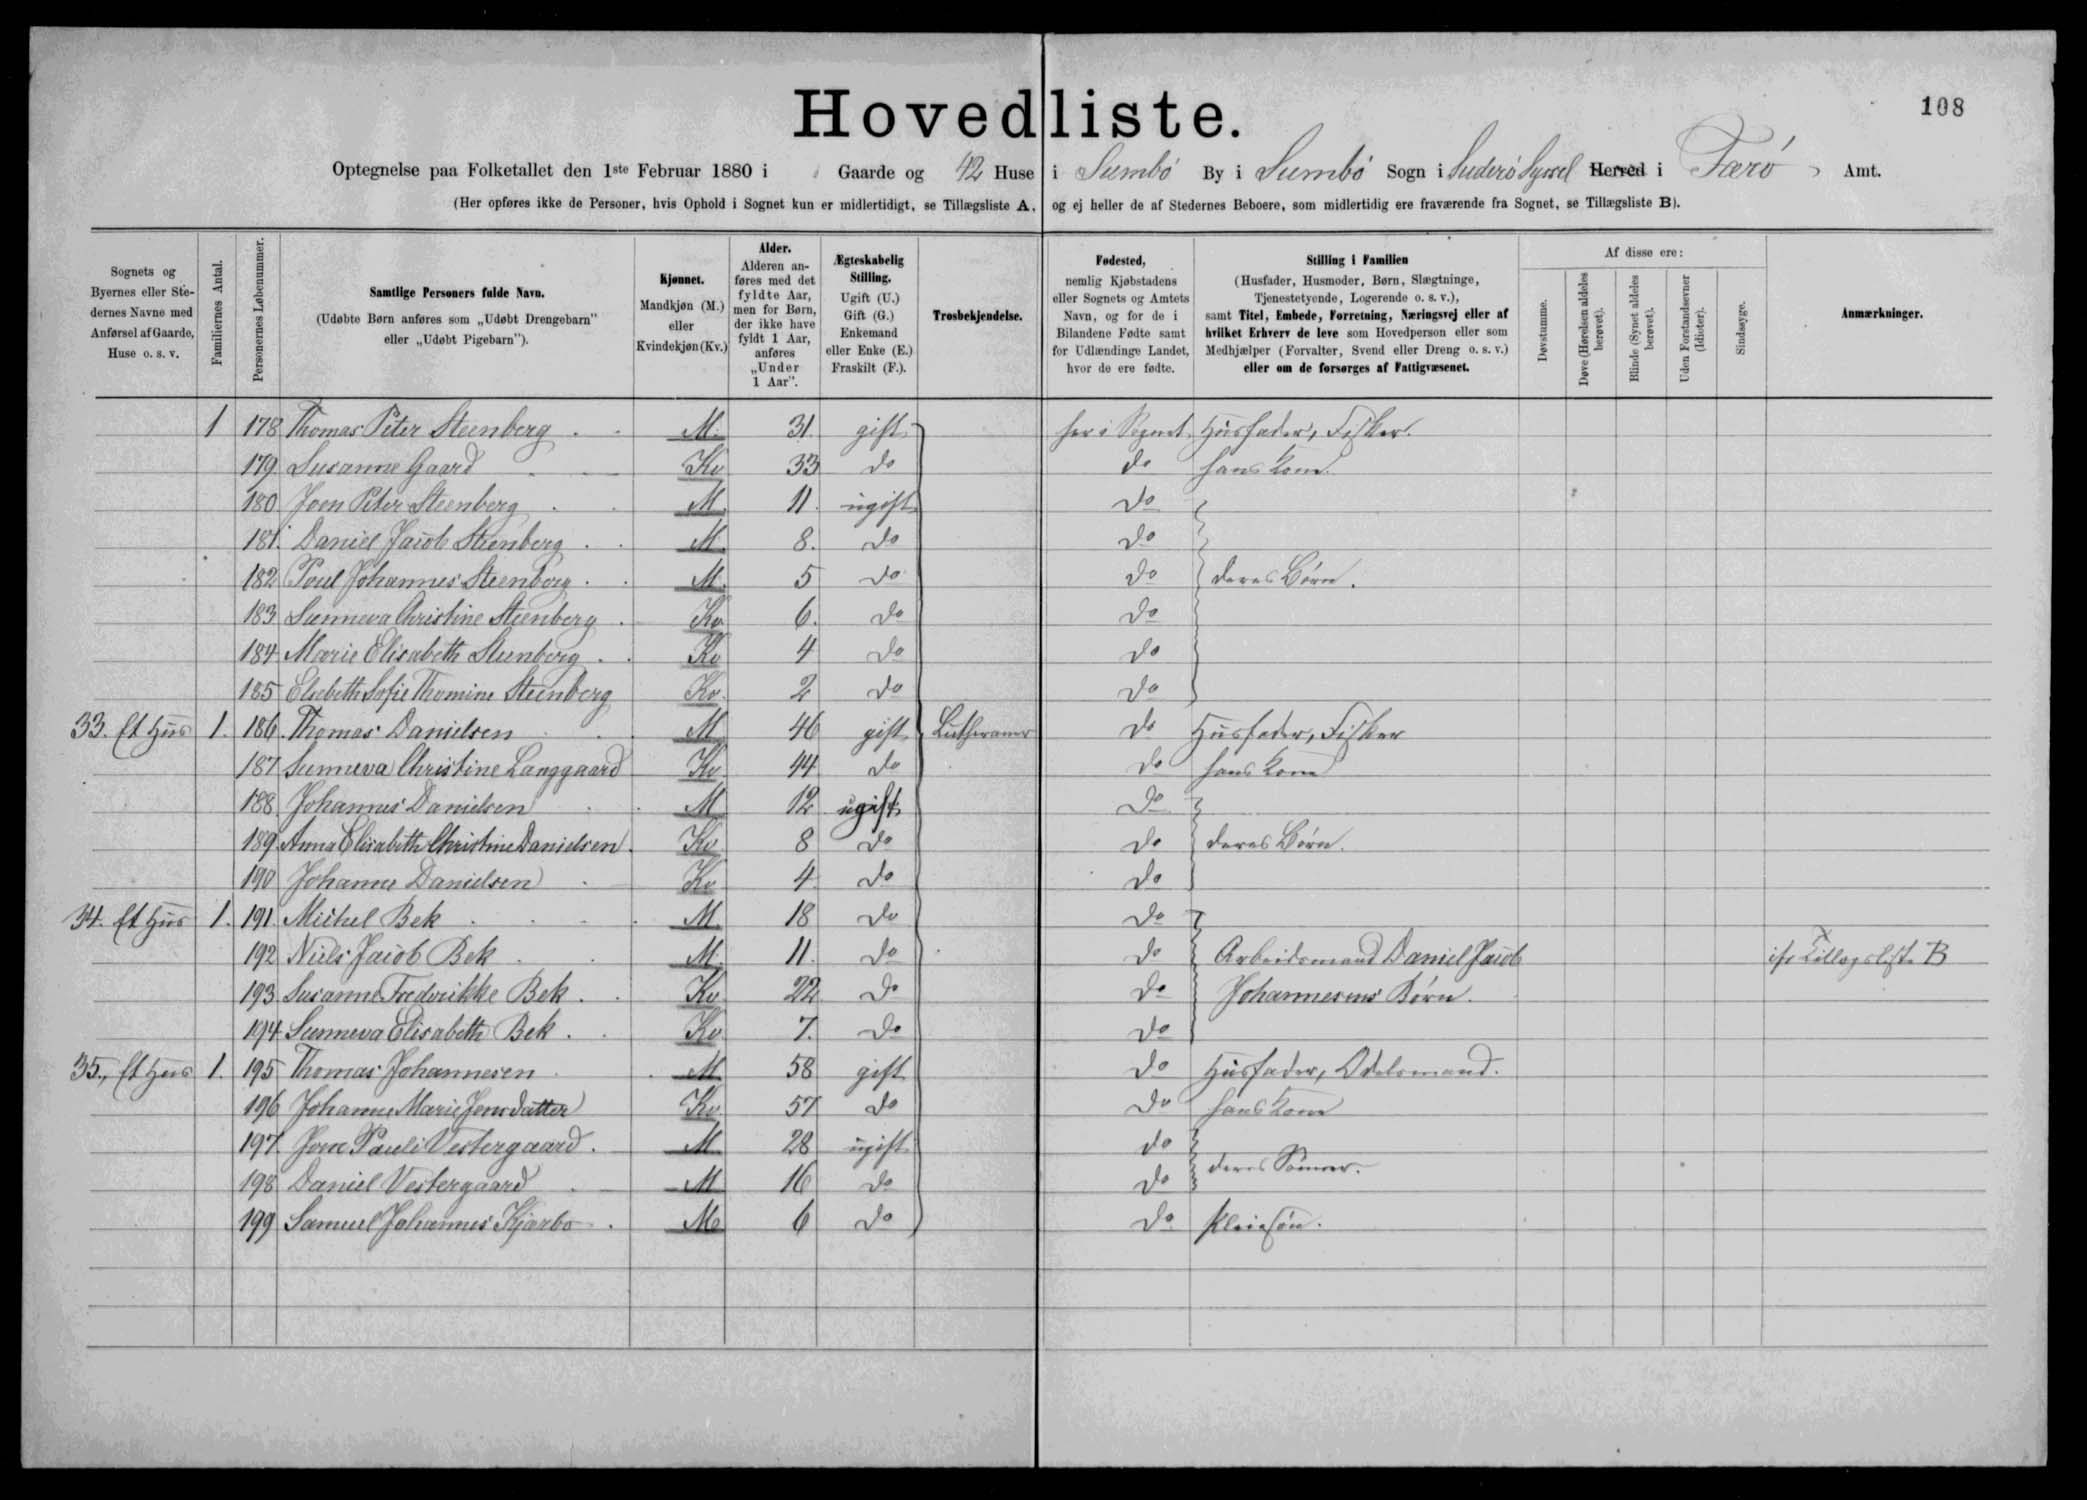 108
Hovedliste.
Optegnelse paa Folketallet den 1ste Februar 1880 i Gaarde og 42 Huse i Sumbö By i Sumbö Sogn i Suderö Syssel Herred i Færö Amt.
(Her opføres ikke de Personer, hvis Ophold i Sognet kun er midlertidigt, se Tillægsliste A, og ej heller de af Stedernes Beboere, som midlertidig ere fraværende fra Sognet, se Tillægsliste B).
Sognets og Byernes eller Stedernes Navne med Anførsel af Gaarde, Huse o. s. v.
Familiernes Antal.
Personernes Løbenummer.
Samtlige Personers fulde Navn.
(Udøbte Børn anføres som „Udøbt Drengebarn" eller „Udøbt Pigebarn").
Kjønnet.
Mandkjøn (M.) eller Kvindekjøn (Kv.)
Alder.
Alderen anføres med det fyldte Aar, men for Børn, der ikke have fyldt 1 Aar, anføres „Under 1 Aar".
Ægteskabelig Stilling.
Ugift (U.) Gift (G.) Enkemand eller Enke (E.) Fraskilt (F.).
Trosbekjendelse.
Fødested,
nemlig Kjøbstadens eller Sognets og Amtets Navn, og for de i Bilandene Fødte samt for Udlændinge Landet, hvor de ere fødte.
Stilling i Familien
(Husfader, Husmoder, Børn, Slægtninge, Tjenestetyende, Logerende o. s. v.), samt Titel, Embede, Forretning, Næringsvej eller af hvilket Erhverv de leve som Hovedperson eller som Medhjælper (Forvalter, Svend eller Dreng o. s. v.) eller om de forsørges af Fattigvæsenet.
Af disse ere:
Døvstumme.
Døve (Hørelsen aldeles berøvet).
Blinde (Synet aldeles berøvet).
Uden Forstandsevner (Idioter).
Sindssyge.
Anmærkninger.
1 178 Thomas Peter Steenberg M. 31. gift her i Sognet Husfader, Fisker.
179 Susanne Gaard Kv 33 do do hans Kone
180 Joen Peter Steenberg M. 11. ugift do
181. Daniel Jacob Steenberg M. 8. do do
182 Poul Johannes Steenberg M. 5 do do deres Börn.
183 Sunneva Christine Steenberg Kv 6. do do
184 Marie Elisabeth Steenberg Kv 4 do do
185 Elsebeth Sofie Thomine Steenberg Kv. 2 do do
33. Et Hus 1. 186. Thomas Danielsen M 46 gift Lutheraner do Husfader, Fisker
187 Sunneva Christine Langgaard Kv 44 do do hans Kone
188 Johannes Danielsen M 12 ugift do
189 Anna Elisabeth Christine Danielsen Kv 8 do do deres Börn.
190 Johanne Danielsen Kv 4 do do
34. Et Hus 1. 191. Michel Bek M. 18 do do
192 Niels Jacob Bek M. 11. do do Arbeidsmand Daniel Jacob Tillægsliste B
193 Susanne Frederikke Bek Kv 22 do do Johannesens Börn.
194 Sunneva Elisabeth Bek Kv 7. do do
35., Et Hus 1. 195 Thomas Johannesen M 58 gift do Husfader, Odelsmand.
196 Johanne Marie Jensdatter Kv. 57 do do hans Kone
197. Joen Pauli Vestergaard M 28 ugift do
198 Daniel Vestergaard M 16 do do deres Sönner.
199 Samuel Johannes Kjærbo M 6 do do Pleiesön.